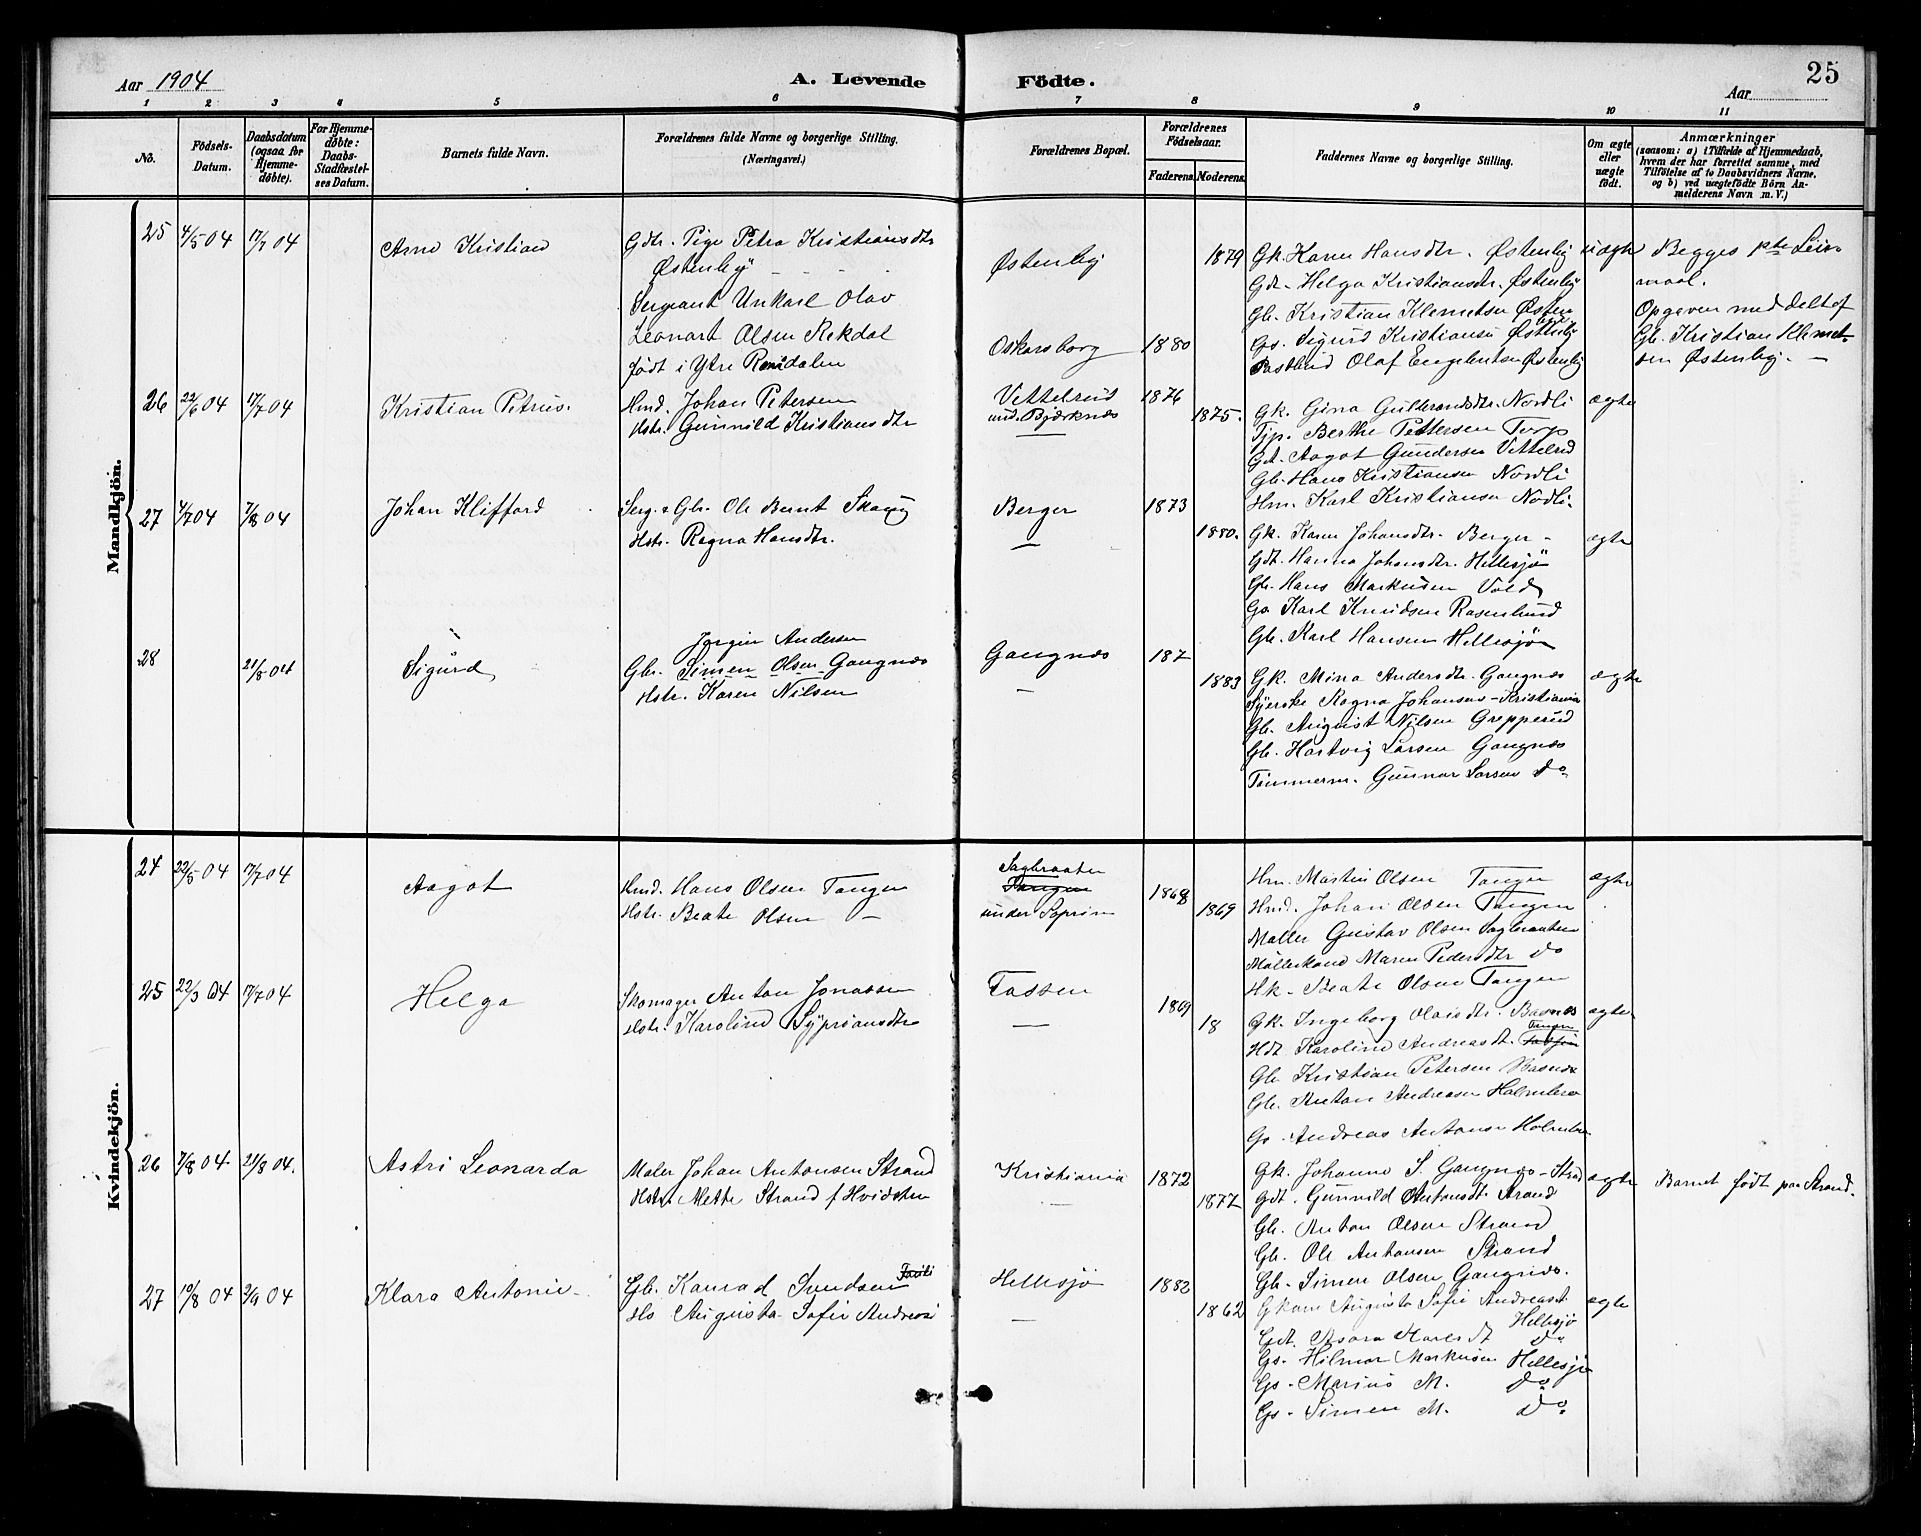 Aar 1904
A. Levende Födte.
25
Aar
1 2 3 4 5 6 7 8 9 10 11
No.
Födsels-
Datum.
Daabsdatum
(ogsaa for
Hjemme-
döbte).
For Hjemme-
döbte:
Daabs-
Stadfæstel-
ses Datum.
Barnets fulde Navn.
Forældrenes fulde Navne og borgerlige Stilling.
(Næringsvei.)
Forældrenes Bopæl.
Forældrenes
Födselsaar.
Faderens. Moderens.
Faddernes Navne og borgerlige Stilling.
Om ægte
eller
uægte
födt.
Anmærkninger
(saasom: a) i Tilfælde af Hjemmedaab,
hvem der har forrettet samme, med
Tilföielse af to Daabsvidners Navne,
og b) ved uægtefödte Börn An-
melderens Navn m. V.)
Mandkjön.
25 4/5 04 17/7 04
Arne Kristian
Gdtr. Pige Petra Kristiansdtr
Østenby
Sergeant Unkarl Olav
Leonart Olsen Rekdal
født i Ytre Romsdalen
Østenby
Oskarsborg
1880
1879
Gk. Karen Hansdtr. Østenby
Gdt. Helga Kristiansdtr. Østenby
Gb. Kristian Klemetsen Østenby
Gs. Sigurd Kristiansen Østenby
Olaf Engebretsen Østenby
uægte
Begges 1ste Leier-
maal.
Opgaven meddelt af
Gb. Kristian Klemet-
sen Østenby. —
26 22/6 04 17/7 04
Kristian Petrus.
Hmd. Johan Petersen
Hstr. Gunnild Kristiansdtr
Vettelrud
und. Bjørknes
1876
1875.
Gk. Gina Gulbrandsdtr. Nordli
Tjp. Berthe Pettersen Torp
Gdt. Aagot Gundersen Vettelrud
Gb. Hans Kristiansen Nordli
Hm. Karl Kristiansen Nordli.
ægte
27 4/7 04 7/8 04
Johan Klifford
Serg. & Gbr. Ole Bernt Skaug
Hstr. Ragna Hansdtr.
Berger
—
1873
1880.
Gk. Karen Johansdtr. Berger
Gdt. Hanna Johansdtr. Hellesjö
Gb. Hans Markusen Vold
Gs. Karl Knudsen Rosenlund
Gb. Karl Hansen Hellesjøn
ægte
28 21/8 04
Sigurd
Jørgen Andersen
Gbr. Simen Olsen Gangnæs
Hstr. Karen Nilsen
Gangnæs
—
187
1883
Gk. Mina Andersdtr. Gangnæs
Syerske Ragna Johansen - Kristiania
Gb. August Nilsen Grepperud
Gb. Hartvig Larsen Gangnæs
Tømmerm. Gunnar Larsen do
ægte
Kvindekjön.
24 22/5 04 17/7 04
Aagot
Hmd. Hans Olsen Tangen
Hstr. Beate Olsen —
Sagbraaten
Tangen
under Soprim
1868
1869
Hm. Martin Olsen Tangen
Hmd. Johan Olsen Tangen
Møller Gustav Olsen Sagbraaten
Møllerkone Maren Pedersdtr do
Hk. Beate Olsen Tangen
ægte
25 22/3 04 17/7 04
Helga
Skomager Anton Jonassen
Hstr. Karoline Syprøansdtr
Tossen
—
1869
18
Gk. Ingeborg Olaisdtr. Basnæs
Hdt Karoline Andreasdt. Tangen
Gb Kristian Petersen Basnæs
Gb. Anton Andreasen Holmbro
Gs. Andreas Antonsen Holmbro
ægte
26 7/8 04 21/8 04.
Astri Leonarda
Maler Johan Antonsen Strand
Hstr Mette Strand f Hvidsten
Kristiania
—
1872
1877
Gk. Johanne S. Gangnæs - Strand
Gdt. Gunvild Antonsdt. Strand
Gb. Anton Olsen Strand
Gb. Ole Antonsen Strand
Gb. Simen Olsen Gangnæs.
ægte
Barnet født paa Strand.
27 10/8 04 2/9 04
Klara Antonie
Gb. Konrad Svendsen
Hs Augusta Sofie Andreas
Hellesjø
—
1882
1862
Gkone Augusta Sofie Andreasdt.
Hellesjø
Gdt. Asora Karlsdt do
Gs. Hilmar Markusen Hellesjø
Gs. Marius M. do
Gs. Simen M. do
ægte